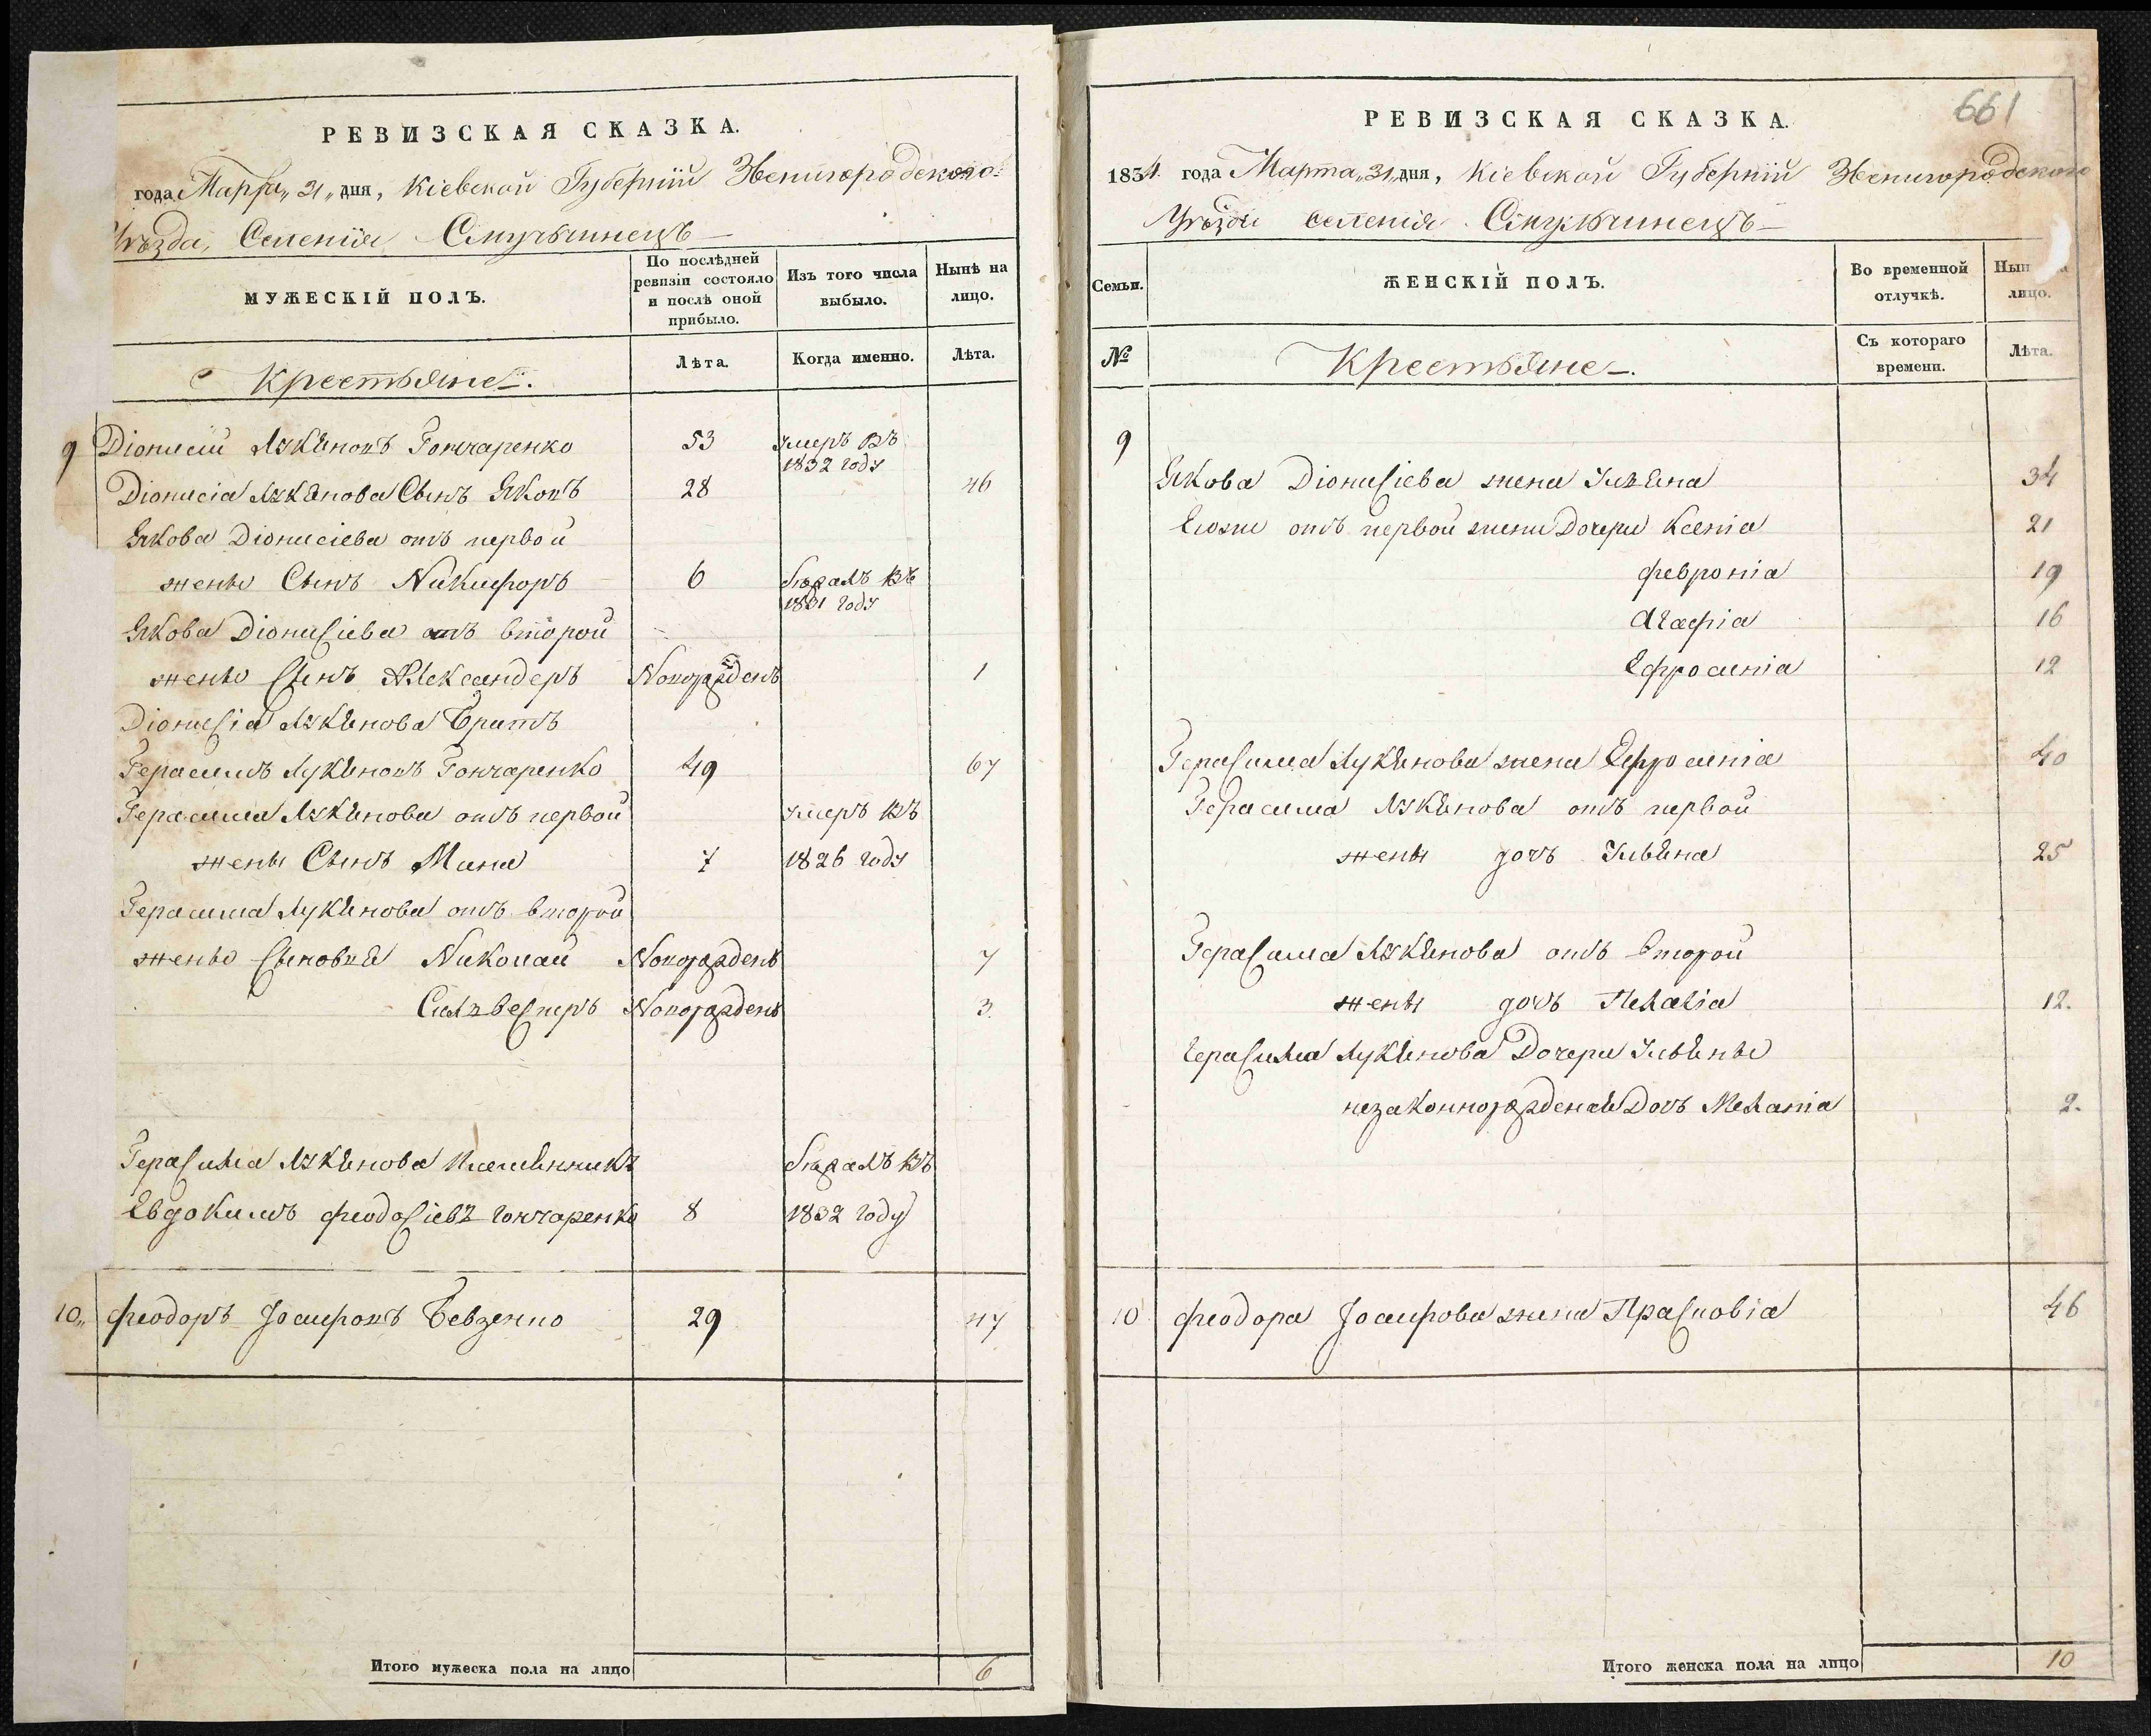 РЕВИЗСКАЯ СКАЗКА.
года Марта „31„ дня, Кіевской Губерніи Звенигородского
Уѣзда, Селенія Смучьчинецъ
МУЖЕСКІЙ ПОЛЪ.
По послѣдней ревизіи состояло и послѣ оной прибыло.
Изъ того числа выбыло.
Нынѣ на лицо.
Крестьяне.
Лѣта.
Когда именно.
Лѣта.
9 Діонисій Лукяновъ Гончаренко 53 умеръ въ 1832 году
Діонисія Лукянова Сынъ Яковъ 28 46
Якова Діонисіева отъ первой
жены Сынъ Никифоръ 6 бѣжалъ въ 1831 году
Якова Діонисіева отъ второй
жены Сынъ Александеръ Новорожденъ 1
Діонисія Лукянова Братъ
Герасимъ Лукяновъ Гончаренко 49 67
Герасима Лукянова отъ первой умеръ въ
жены Сынъ Мина 7 1826 году
Герасима Лукянова отъ второй
жены Сыновя Николай Новорожденъ 7
Силвестръ Новорожденъ 3.
Герасима Лукянова Племянникъ бѣжалъ въ
Евдокимъ Феодосіевъ Гончаренко 8 1832 году
10„ Феодоръ Іосифовъ Бевзенко 29 47
Итого мужеска пола на лицо 6
661
РЕВИЗСКАЯ СКАЗКА.
1834 года Марта „31„ дня, Кіевской Губерніи Звенигородского
Уѣзда селенія Смульчинецъ
Семьи.
ЖЕНСКІЙ ПОЛЪ.
Во временной отлучкѣ.
Нын лицо.
№
Крестьяне.
Съ котораго времени.
Лѣта.
9
Якова Діонисіева жена Улияна 34
Егоже отъ первой жены Дочери Ксенія 21
Февронія 19
Агафія 16
Ефросинія 12
Герасима Лукянова жена Ефросинія 40
Герасима Лукянова отъ первой
жены дочъ Улияна 25
Герасима Лукянова отъ второй
жены дочъ Пелагія 12.
Герасима Лукянова Дочери Улияны
незаконнорожденая Дочъ Меланія 2.
10 Феодора Іосифова жена Прасковія 46
Итого женска пола на лицо 10